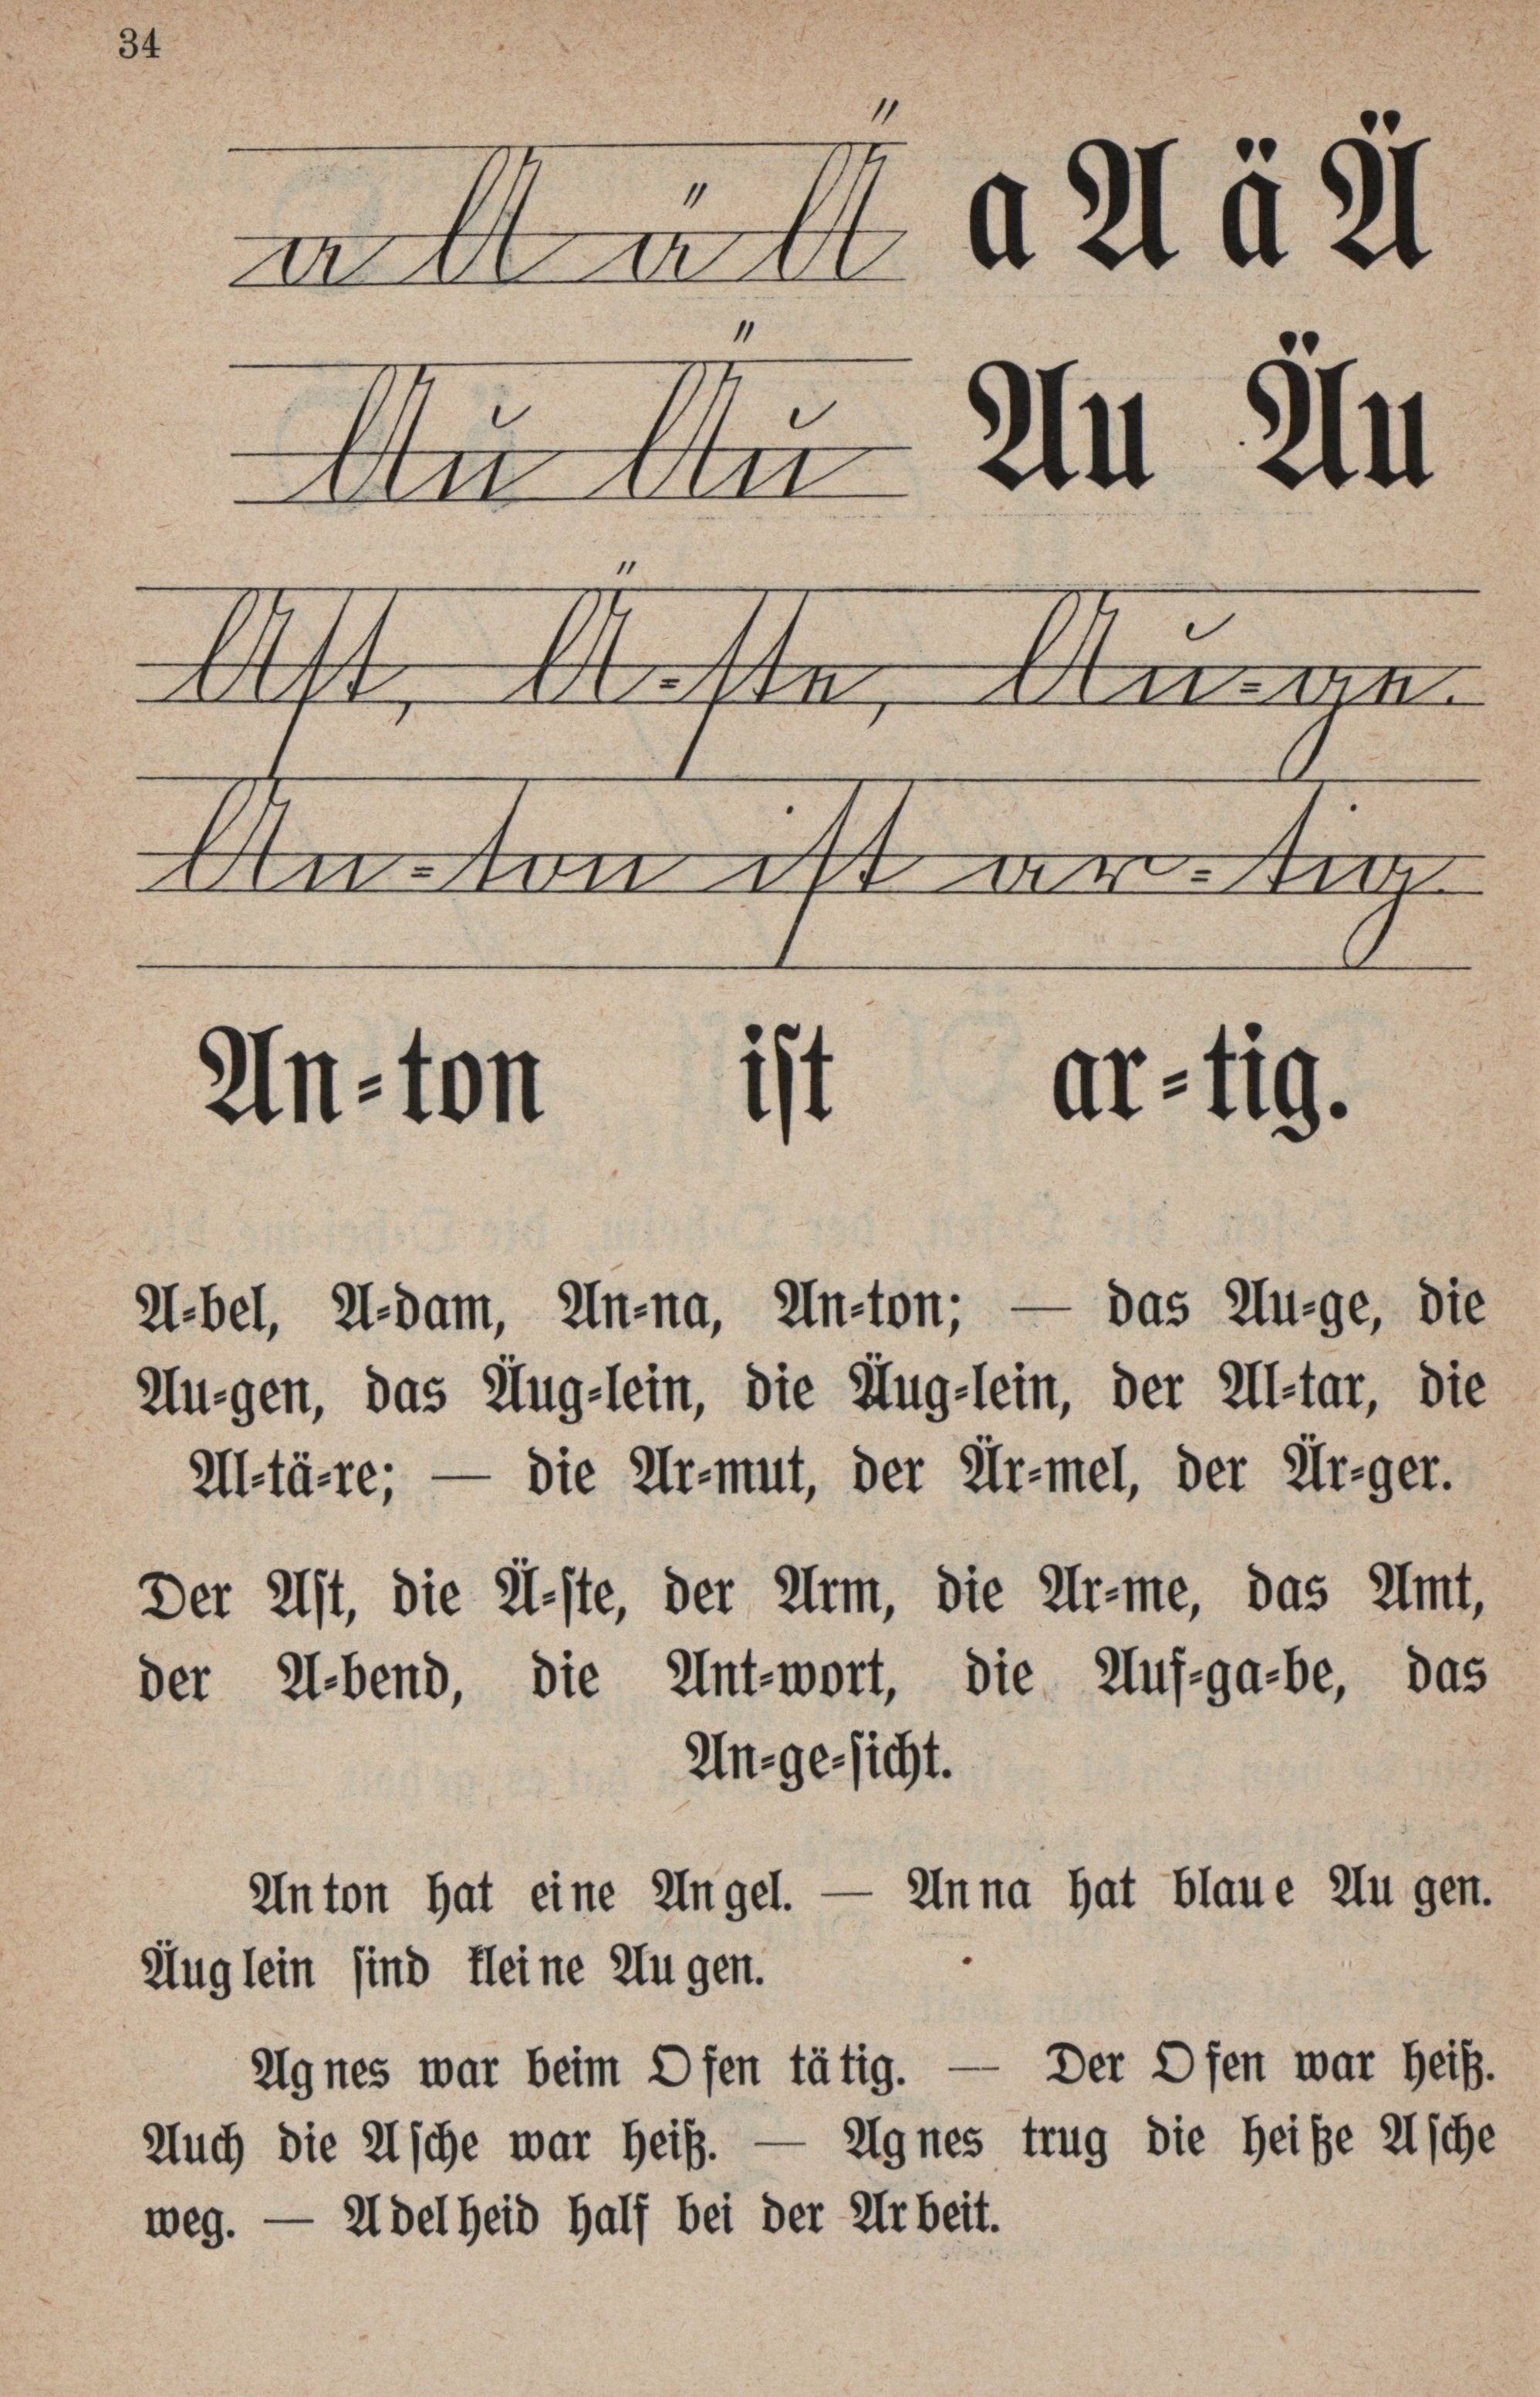 34
a A ä Ä a A ä Ä
Au Äu Au Äu
Ast, Ä=ste, Au=ge.
An=ton ist ar=tig.
An=ton ist ar=tig.
A=bel, A=dam, An=na, An=ton; — das Au=ge, die
Au=gen, das Äug=lein, die Äug=lein, der Al=tar, die
Al=tä=re; — die Ar=mut, der Är=mel, der Är=ger.
Der Ast, die Ä=ste, der Arm, die Ar=me, das Amt,
der A=bend, die Ant=wort, die Auf=ga=be, das
An=ge=sicht.
An ton hat ei ne An gel. — An na hat blau e Au gen.
Äug lein sind klei ne Au gen.
Ag nes war beim O fen tä tig. — Der O fen war heiß.
Auch die A sche war heiß. — Ag nes trug die hei ße A sche
weg. — A del heid half bei der Ar beit.